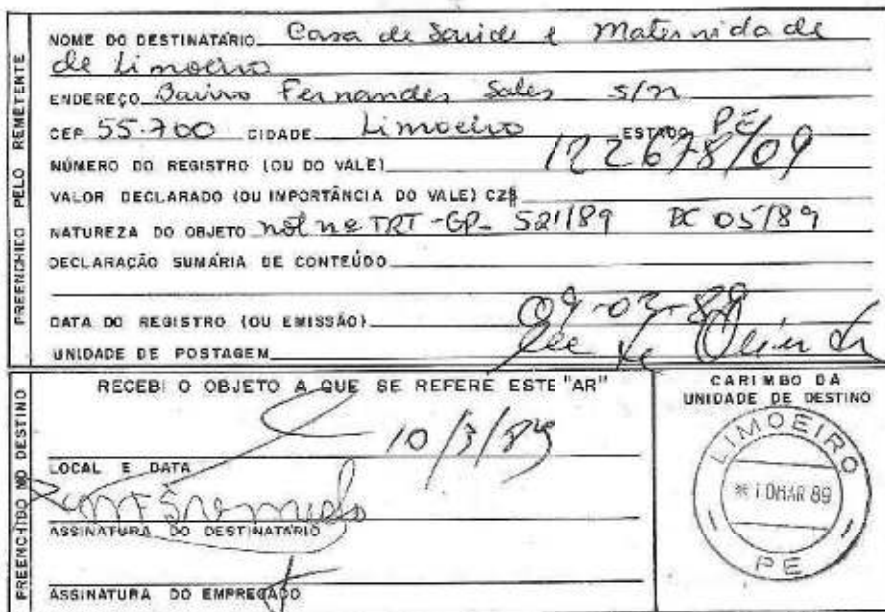 PREENCHIDO PELO REMETENTE
NOME DO DESTINATÁRIO Casa de Saúde e Maternidade
de Limoeiro
ENDEREÇO Bairro Fernandes Sales s/n
CEP 55.700 CIDADE Limoeiro ESTADO PE
NÚMERO DO REGISTRO (OU DO VALE) 122678/09
VALOR DECLARADO (OU IMPORTÂNCIA DO VALE) CZ$
NATUREZA DO OBJETO not nº TRT-GP- 521/89 DC 05/89
DECLARAÇÃO SUMÁRIA DE CONTEÚDO
DATA DO REGISTRO (OU EMISSÃO) 09-03-89
UNIDADE DE POSTAGEM
PREENCHIDO NO DESTINO
RECEBI O OBJETO A QUE SE REFERE ESTE "AR"
10/3/89
LOCAL E DATA
ASSINATURA DO DESTINATÁRIO
ASSINATURA DO EMPREGADO
CARIMBO DA
UNIDADE DE DESTINO
LIMOEIRO
* 10 MAR 89
PE